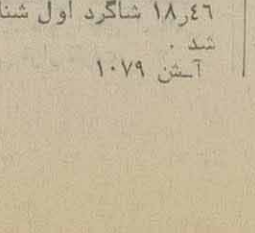 ۱۸٫٤٦ شاگرد اول شنا
شد .
آ-ش ۱۰۷۹